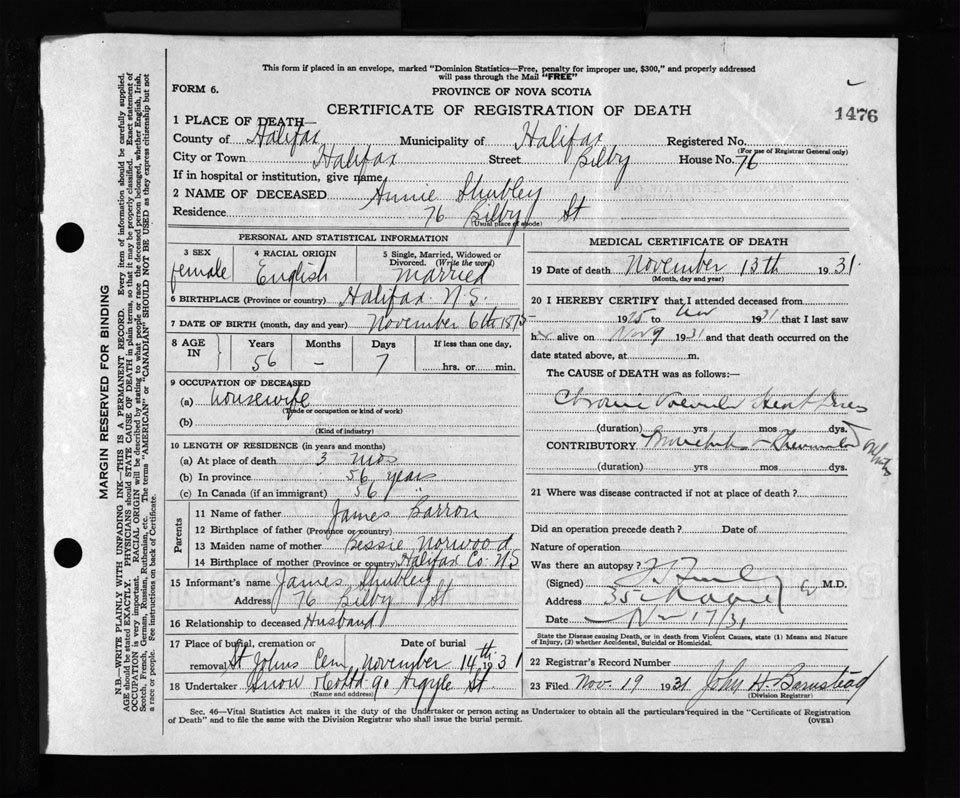 This form if placed in an envelope, marked "Dominion Statistics—Free, penalty for improper use, $300," and properly addressed
will pass through the Mail "FREE"
FORM 6.
PROVINCE OF NOVA SCOTIA
CERTIFICATE OF REGISTRATION OF DEATH
1476
1 PLACE OF DEATH—
County of Halifax Municipality of Halifax Registered No.
(For use of Registrar General only)
City or Town Halifax Street Bilby House No. 76
If in hospital or institution, give name
2 NAME OF DECEASED Annie Shubley
Residence 76 Bilby St
(Usual place of abode)
PERSONAL AND STATISTICAL INFORMATION
3 SEX 4 RACIAL ORIGIN 5 Single, Married, Widowed or
Divorced. (Write the word)
female English married
6 BIRTHPLACE (Province or country) Halifax N.S.
7 DATE OF BIRTH (month, day and year) November 6th 1875
8 AGE IN Years Months Days If less than one day,
56 – 7 hrs. or min.
9 OCCUPATION OF DECEASED
(a) housewife
(Trade or occupation or kind of work)
(b)
(Kind of industry)
10 LENGTH OF RESIDENCE (in years and months)
(a) At place of death 3 mos
(b) In province 56 years
(c) In Canada (if an immigrant) 56 "
Parents
11 Name of father James Barron
12 Birthplace of father (Province or country)
13 Maiden name of mother Bessie Norwood
14 Birthplace of mother (Province or country) Halifax Co. N S
15 Informant's name James Shubley
Address 76 Bilby St
16 Relationship to deceased Husband
17 Place of burial, cremation or Date of burial
removal St Johns Cem November 14th 1931
18 Undertaker Snow & Co Ltd 90 Argyle St
(Name and address)
MEDICAL CERTIFICATE OF DEATH
19 Date of death November 13th 1931.
(Month, day and year)
20 I HEREBY CERTIFY that I attended deceased from
1925 to Nov 1931 that I last saw
h alive on Nov 9 1931 and that death occurred on the
date stated above, at m.
The CAUSE of DEATH was as follows:—
Chronic Valvular Heart Disease
(duration) yrs mos dys.
CONTRIBUTORY
(duration) yrs mos dys.
21 Where was disease contracted if not at place of death?
Did an operation precede death? Date of
Nature of operation
Was there an autopsy?
(Signed) M.D.
Address 35
Date Nov 17/31
State the Disease causing Death, or in death from Violent Causes, state (1) Means and Nature
of Injury, (2) whether Accidental, Suicidal or Homicidal.
22 Registrar's Record Number
23 Filed Nov. 19 1931 John H. Barnstead
(Division Registrar)
Sec. 46—Vital Statistics Act makes it the duty of the Undertaker or person acting as Undertaker to obtain all the particulars required in the "Certificate of Registration
of Death" and to file the same with the Division Registrar who shall issue the burial permit.
(OVER)
MARGIN RESERVED FOR BINDING
N.B.—WRITE PLAINLY WITH UNFADING INK—THIS IS A PERMANENT RECORD. Every item of information should be carefully supplied.
AGE should be stated EXACTLY. PHYSICIANS should STATE CAUSE OF DEATH in plain terms, so that it may be properly classified. Exact statement of
OCCUPATION is very important. RACIAL ORIGIN will be described by stating to what people or race the deceased person belonged, whether English, Irish,
Scotch, French, German, Russian, Ruthenian, etc. The terms "AMERICAN" or "CANADIAN" SHOULD NOT BE USED as they express citizenship but not
a race or people. See instructions on back of Certificate.